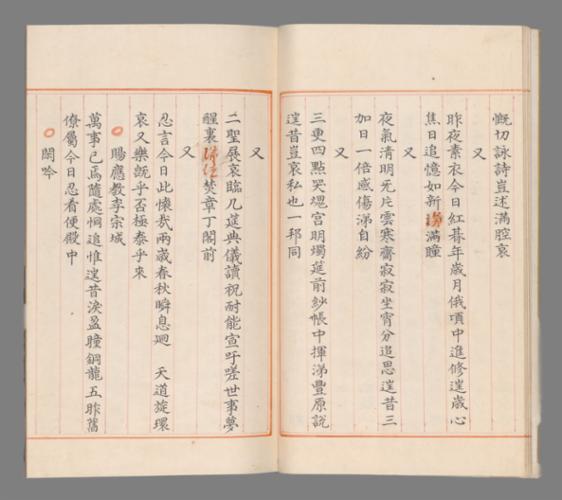 慨切詠詩豈述滿腔哀
又
昨夜素衣今日紅暮年歲月俄頃中進修違歲心
焦日追憶如新淚滿瞳
又
夜氣清明无片雲寒齋寂寂坐宵分追思違昔三
加日一倍感傷涕自紛
又
三更四點哭魂宮明燭筵前紗帳中揮涕豐原說
違昔豈哀私也一邦同
又
二聖展哀臨几筵典儀讀祝耐能宣吁嗟世事夢
醒裏焚章丁閣前
又
忍言今日此懷哉兩歲春秋瞬息廻 天道旋環
哀又樂旣乎否極泰乎來
賜應教李宗城
萬事已爲隨處恫追惟違昔淚盈瞳銅龍五昨舊
僚屬今日忍看便殿中
閑吟